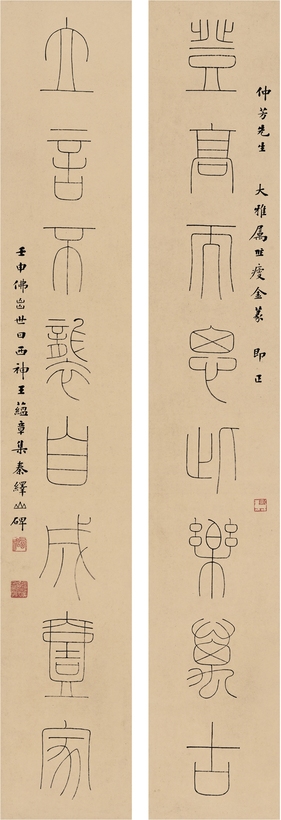 仲芳先生 大雅屬 瘦金篆 即正
登高而思此樂萬古
立言不襲自成壹家
壬申佛出世日西神王蘊章集秦繹山碑